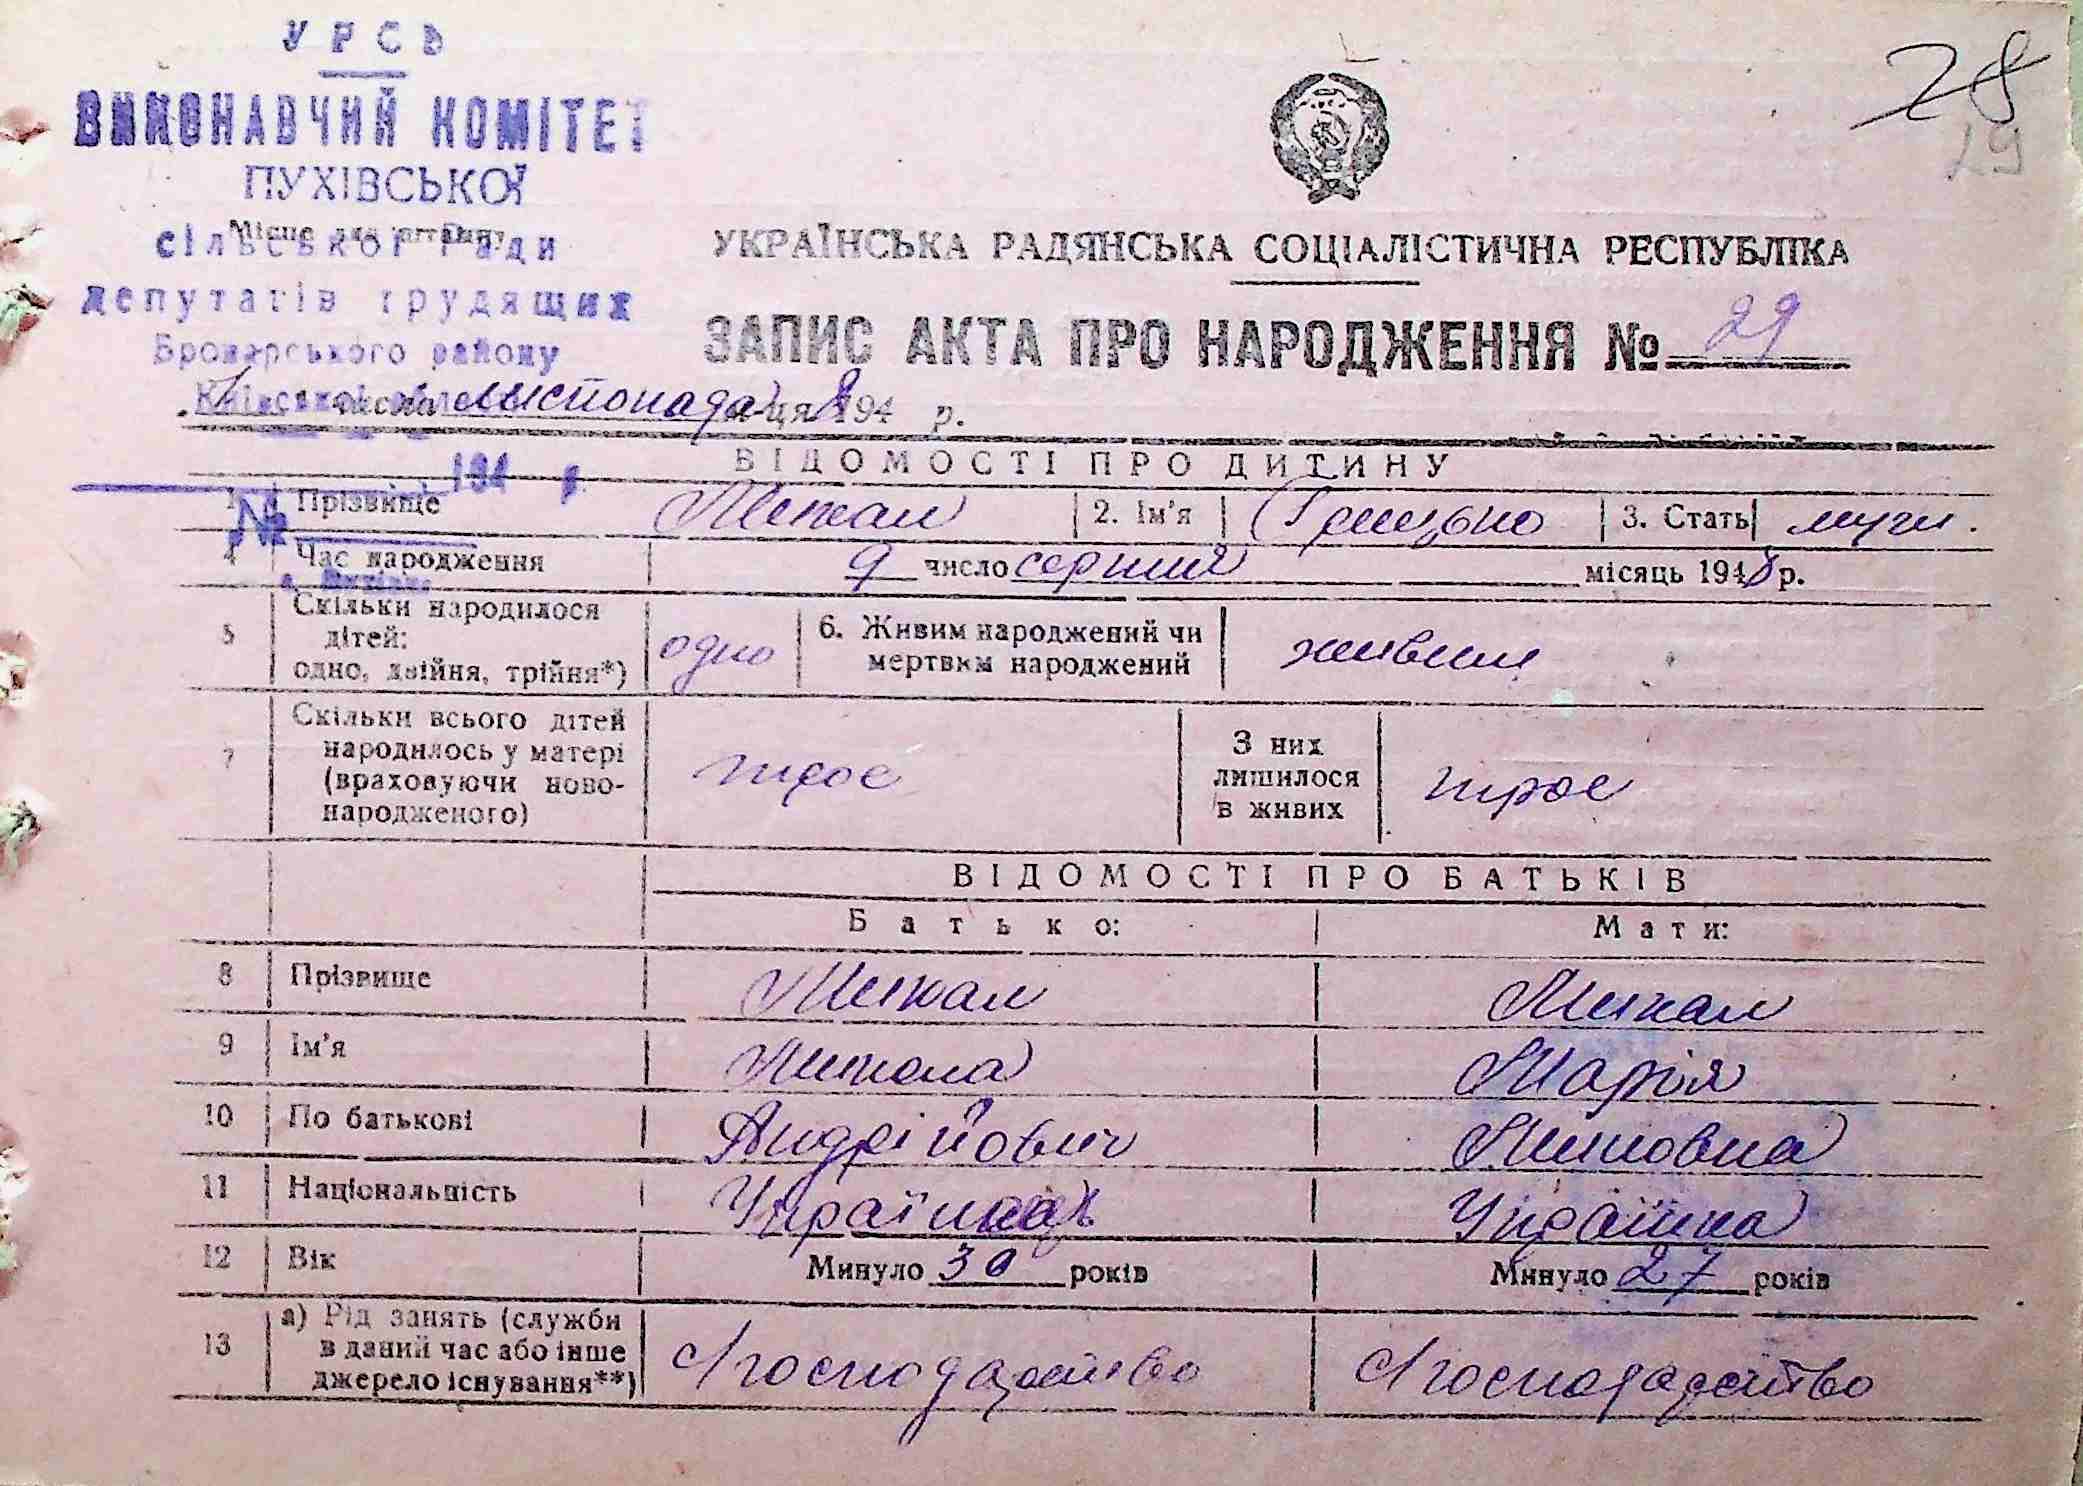 УРСР
28
ВИКОНАВЧИЙ КОМІТЕТ
19
ПУХІВСЬКОЇ
Місце для штампу
сільської Ради
УКРАЇНСЬКА РАДЯНСЬКА СОЦІАЛІСТИЧНА РЕСПУБЛІКА
депутатів трудящих
ЗАПИС АКТА ПРО НАРОДЖЕННЯ № 29
Броварського району
Київської
числа листопада м-ця 1948 р.
194 р.
№
ВІДОМОСТІ ПРО ДИТИНУ
1 Прізвище Михал 2. Ім'я Грицько 3. Стать муж.
4 Час народження 9 число серпня місяць 1948 р.
5 Скільки народилося дітей: одно, двійня, трійня*) одно 6. Живим народжений чи мертвим народжений живим
7 Скільки всього дітей народилось у матері (враховуючи новонародженого) троє З них лишилося в живих троє
ВІДОМОСТІ ПРО БАТЬКІВ
Батько: Мати:
8 Прізвище Михал Михал
9 Ім'я Микола Марія
10 По батькові Андрійович
11 Національність Українець Українка
12 Вік Минуло 30 років Минуло 27 років
13 а) Рід занять (служби в даний час або інше джерело існування**) С/господарство С/господарство